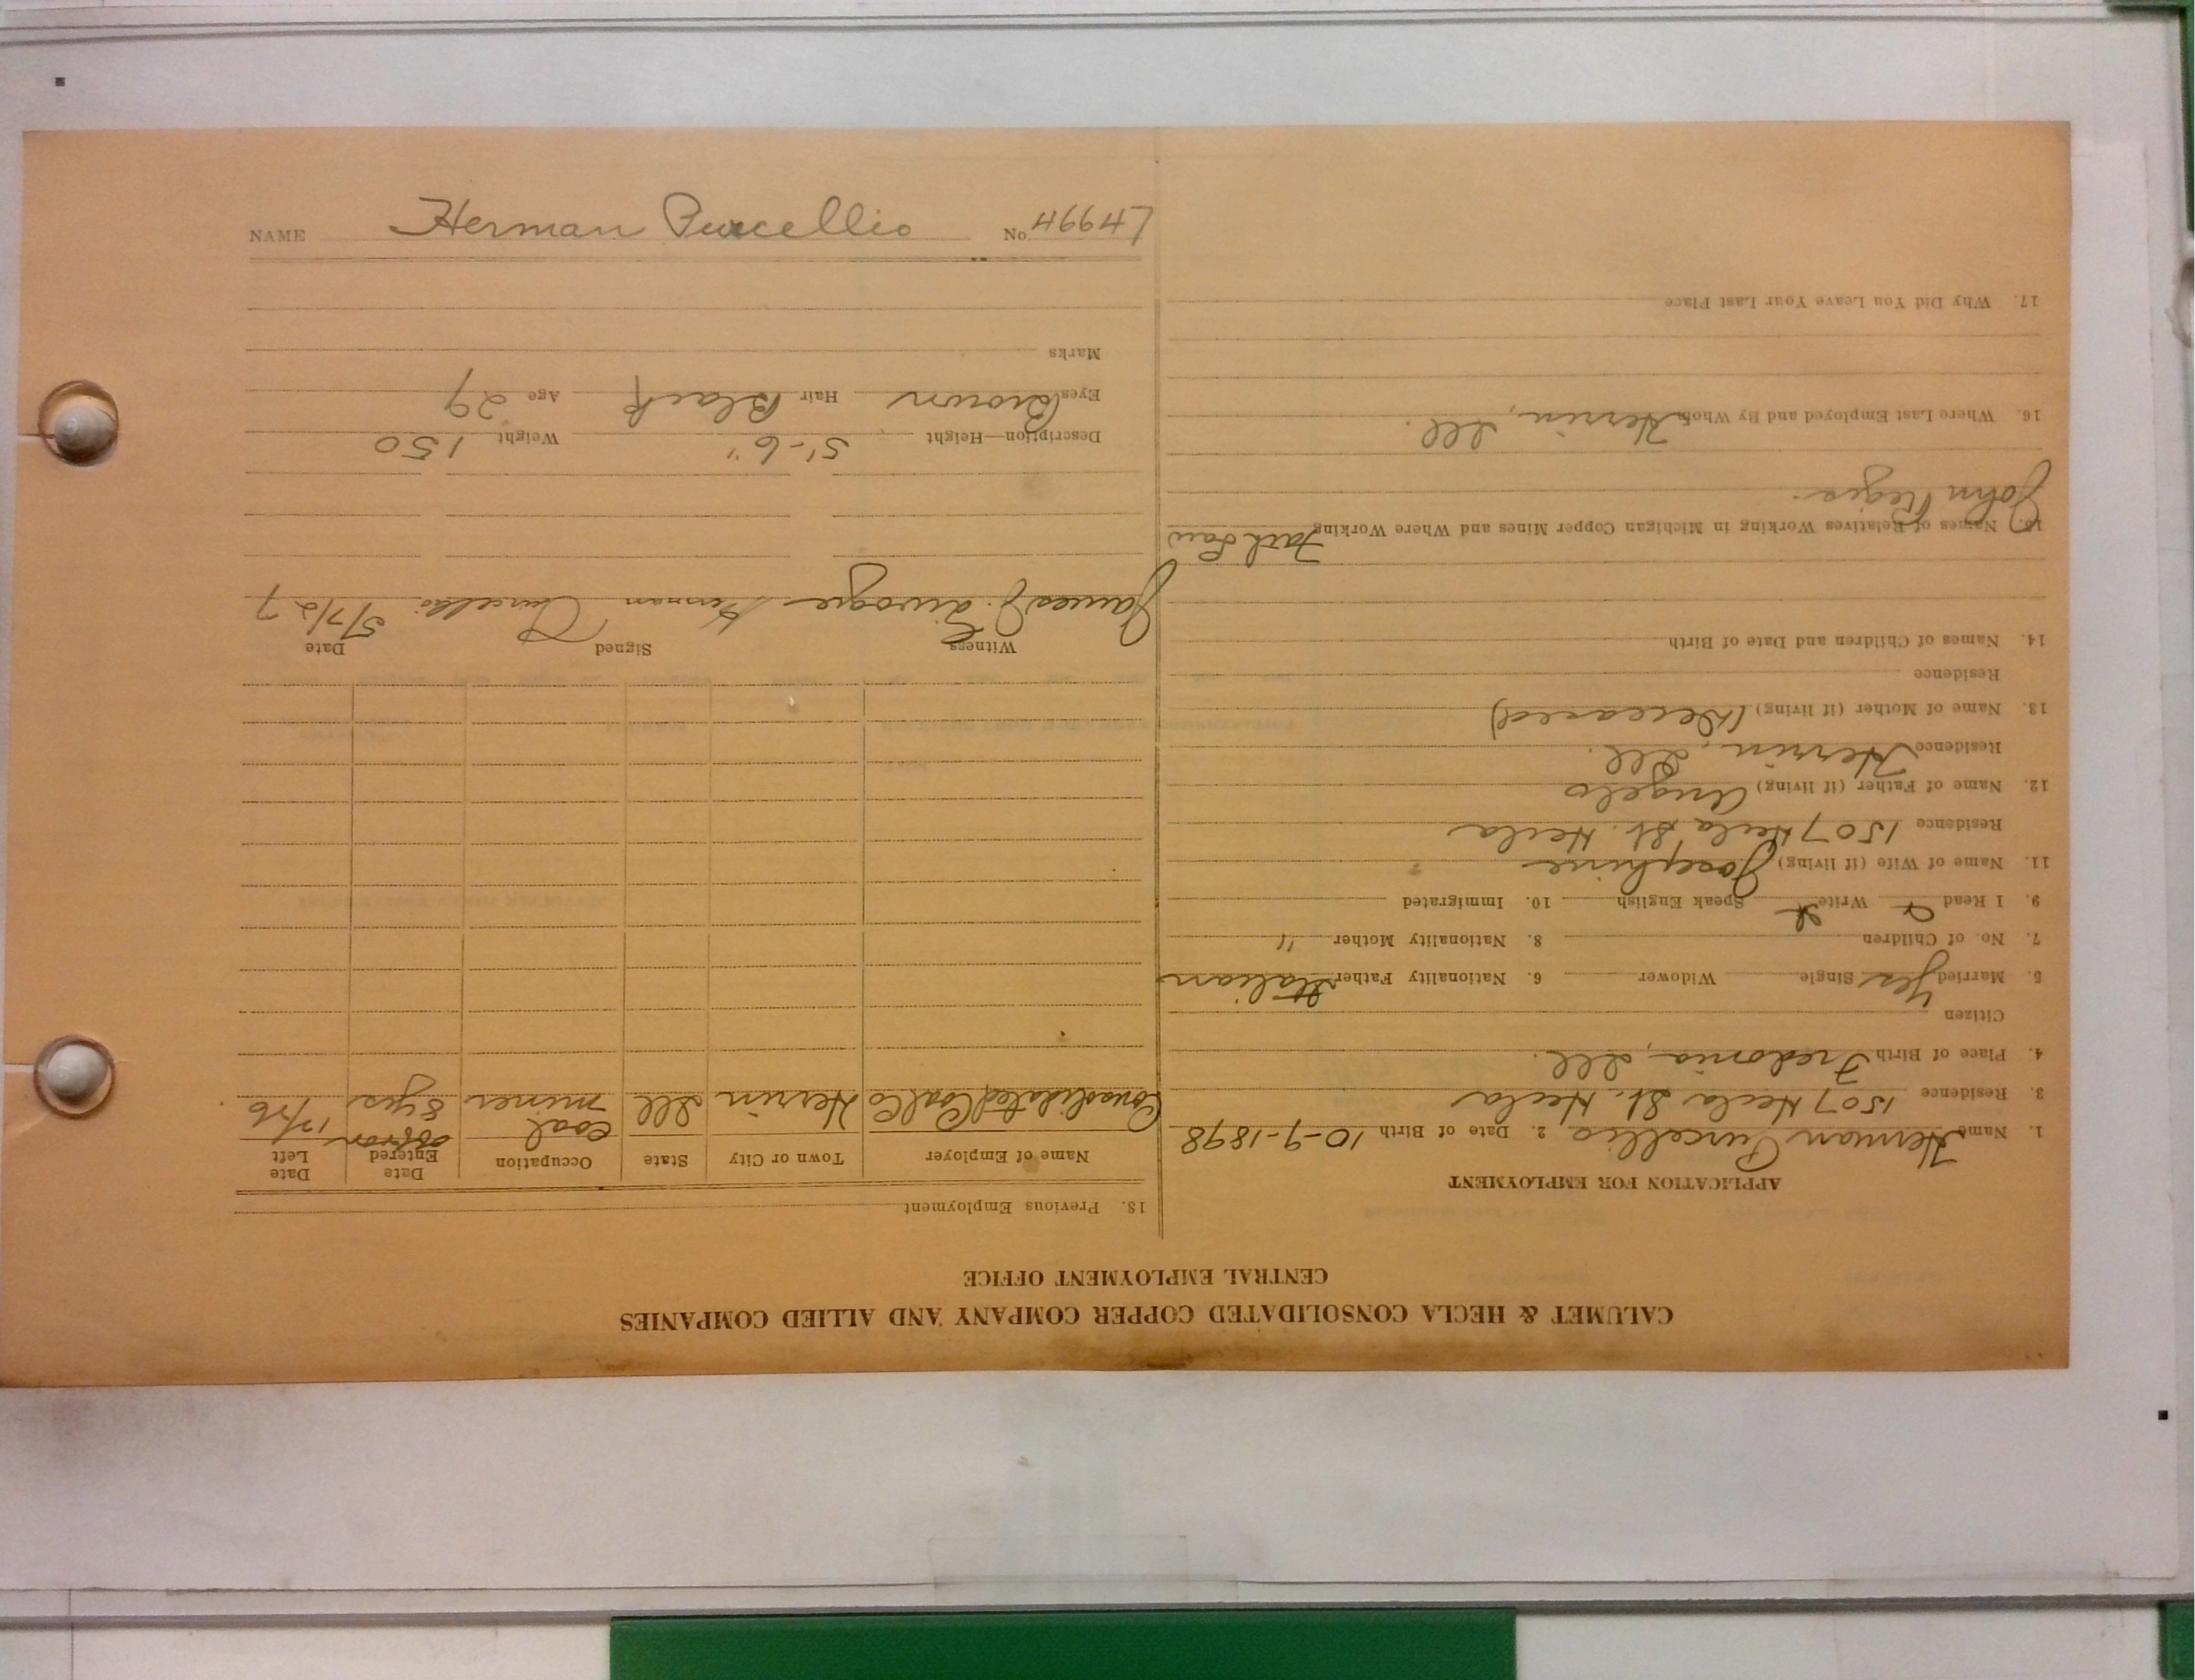 CALUMET & HECLA CONSOLIDATED COPPER COMPANY AND ALLIED COMPANIES
CENTRAL EMPLOYMENT OFFICE
APPLICATION FOR EMPLOYMENT
1. Name Herman Purcellio 2. Date of Birth 10-9-1898
3. Residence 1507 Hecla St. Hecla
4. Place of Birth Fredonia, Ill.
Citizen
5. Married Yes Single Widower 6. Nationality Father Italian
7. No. of Children 8. Nationality Mother "
9. I Read Write Speak English 10. Immigrated
11. Name of Wife (if living) Josephine
Residence 1507 Hecla St. Hecla
12. Name of Father (if living) Angelo
Residence Herrin, Ill.
13. Name of Mother (if living) (Deceased)
Residence
14. Names of Children and Date of Birth
15. Names of Relatives Working in Michigan Copper Mines and Where Working Fath Law
John
16. Where Last Employed and By Whom Herrin, Ill.
17. Why Did You Leave Your Last Place
18. Previous Employment
Name of Employer Town or City State Occupation Date Entered Date Left
Consolidated Coal Co Herrin Ill Coal miner off & on 8 yrs 12/26
Witness Signed Date
James J. Herman Purcellio 5/7/27
Description—Height 5'-6" Weight 150
Eyes Brown Hair Black Age 29
Marks
NAME Herman Purcellio No 46647